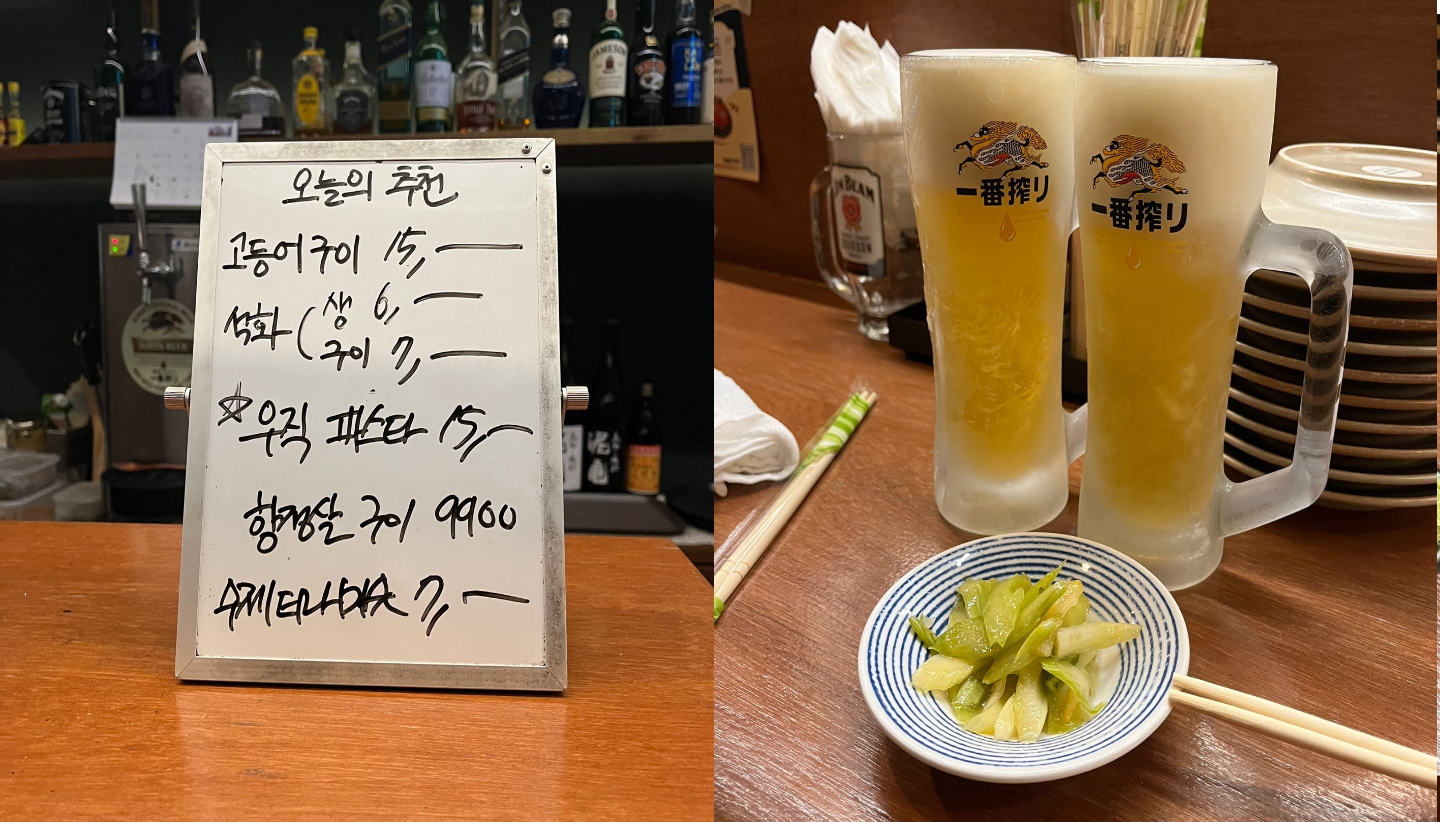 오늘의 추천
고등어구이 15,—
석화 ( 생 6,—
구이 7,—
☆우직 파스타 15,—
항정살 구이 9900
수제티라미수 7,—
JAMESON
KIRIN BEER
一番搾り
一番搾り
JIM BEAM
BOURBON